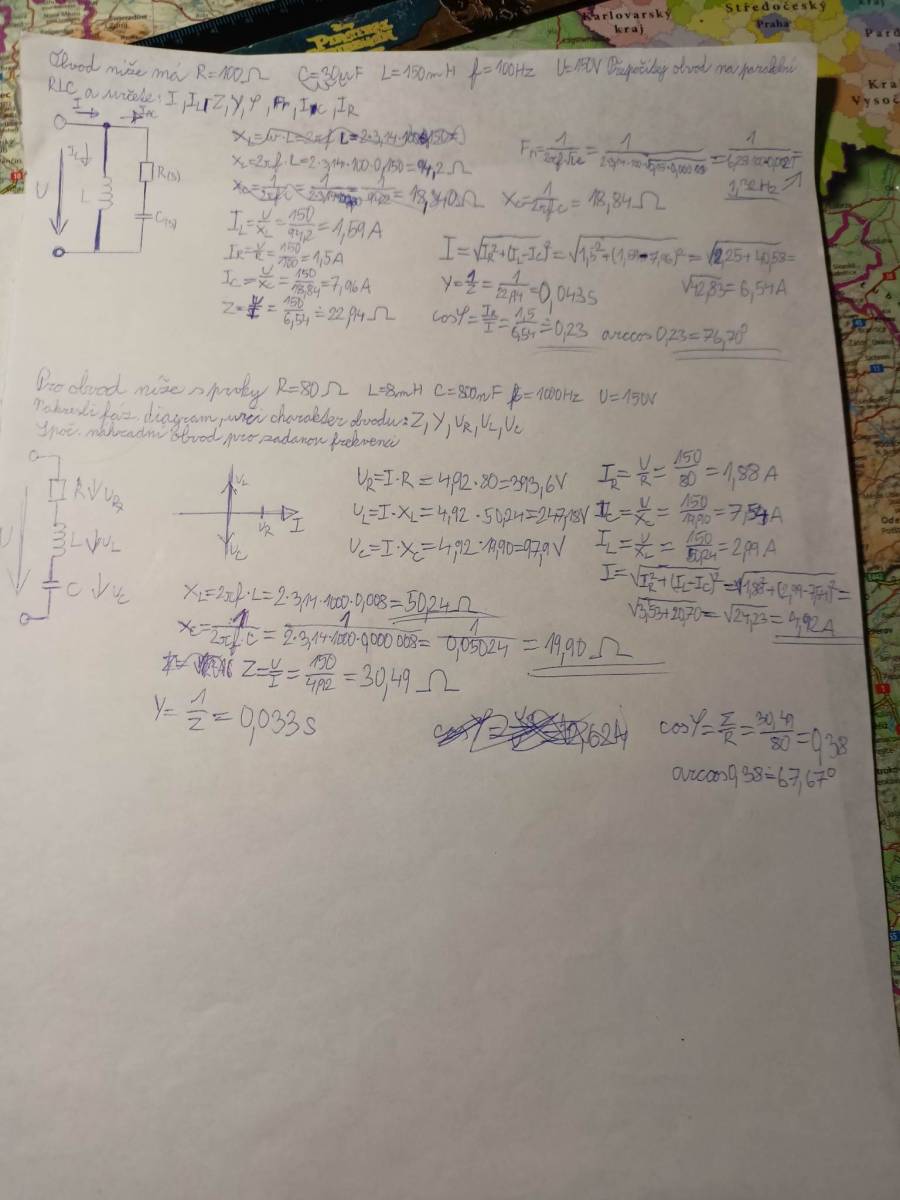 Karlovarský
kraj
Středočeský
Praha
kraj
Vysoč
Obvod níže má R=100Ω C=30μF L=150mH f=100Hz U=150V Přepočítej obvod na paralelní
RLC a určete: I, IL, Z, Y, φ, Fr, IC, IR
I
IL
U
L
R(s)
C(s)
XL=2πf·L=2·3,14·100·0,150=94,2Ω
IL=U/XL=150/94,2=1,59A
IR=U/R=150/100=1,5A
IC=U/XC=150/18,84=7,96A
Z=U/I=150/6,54≐22,94Ω
XC=1/2πfC=18,84Ω
1,32Hz
I=√IR²+(IL-IC)²=√1,5²+(1,59-7,96)²=√2,25+40,58=
√42,83=6,54A
Y=1/Z=1/22,94=0,043S
cosφ=IR/I=1,5/6,54≐0,23 arccos 0,23=76,70°
Pro obvod níže s prvky R=80Ω L=8mH C=800nF f=1000Hz U=150V
Nakresli fáz. diagram, urči charakter obvodu: Z, Y, UR, UL, UC
Spoč. náhradní obvod pro zadanou frekvenci
U
R↓UR
L↓UL
C↓UC
UL
UR
I
UC
UR=I·R=4,92·80=393,6V
UL=I·XL=4,92·50,24=247,18V
UC=I·XC=4,92·19,90=97,9V
IR=U/R=150/80=1,88A
IC=U/XC=150/19,90=7,54A
IL=U/XL=150/50,24=2,99A
I=√IR²+(IL-IC)²=√1,88²+(2,99-7,54)²=
√3,53+20,70=√24,23=4,92A
XL=2πf·L=2·3,14·1000·0,008=50,24Ω
XC=1/2πf·C=1/2·3,14·1000·0,000008=1/0,05024=19,90Ω
Z=U/I=150/4,92=30,49Ω
Y=1/Z=0,033S
cosφ=Z/R=30,49/80=0,38
arccos0,38≐67,67°